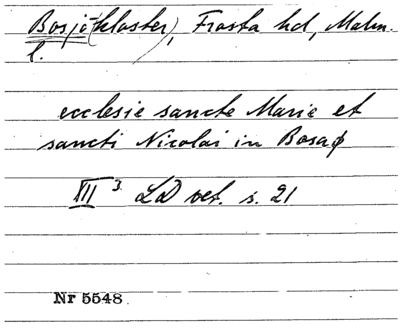 Bosjö(kloster), Frosta hd, Malm.
l.
ecclesie sancte Marie et
sancti Nicolai in Bosaø
XII 3. LD vet. s. 21
Nr 5548